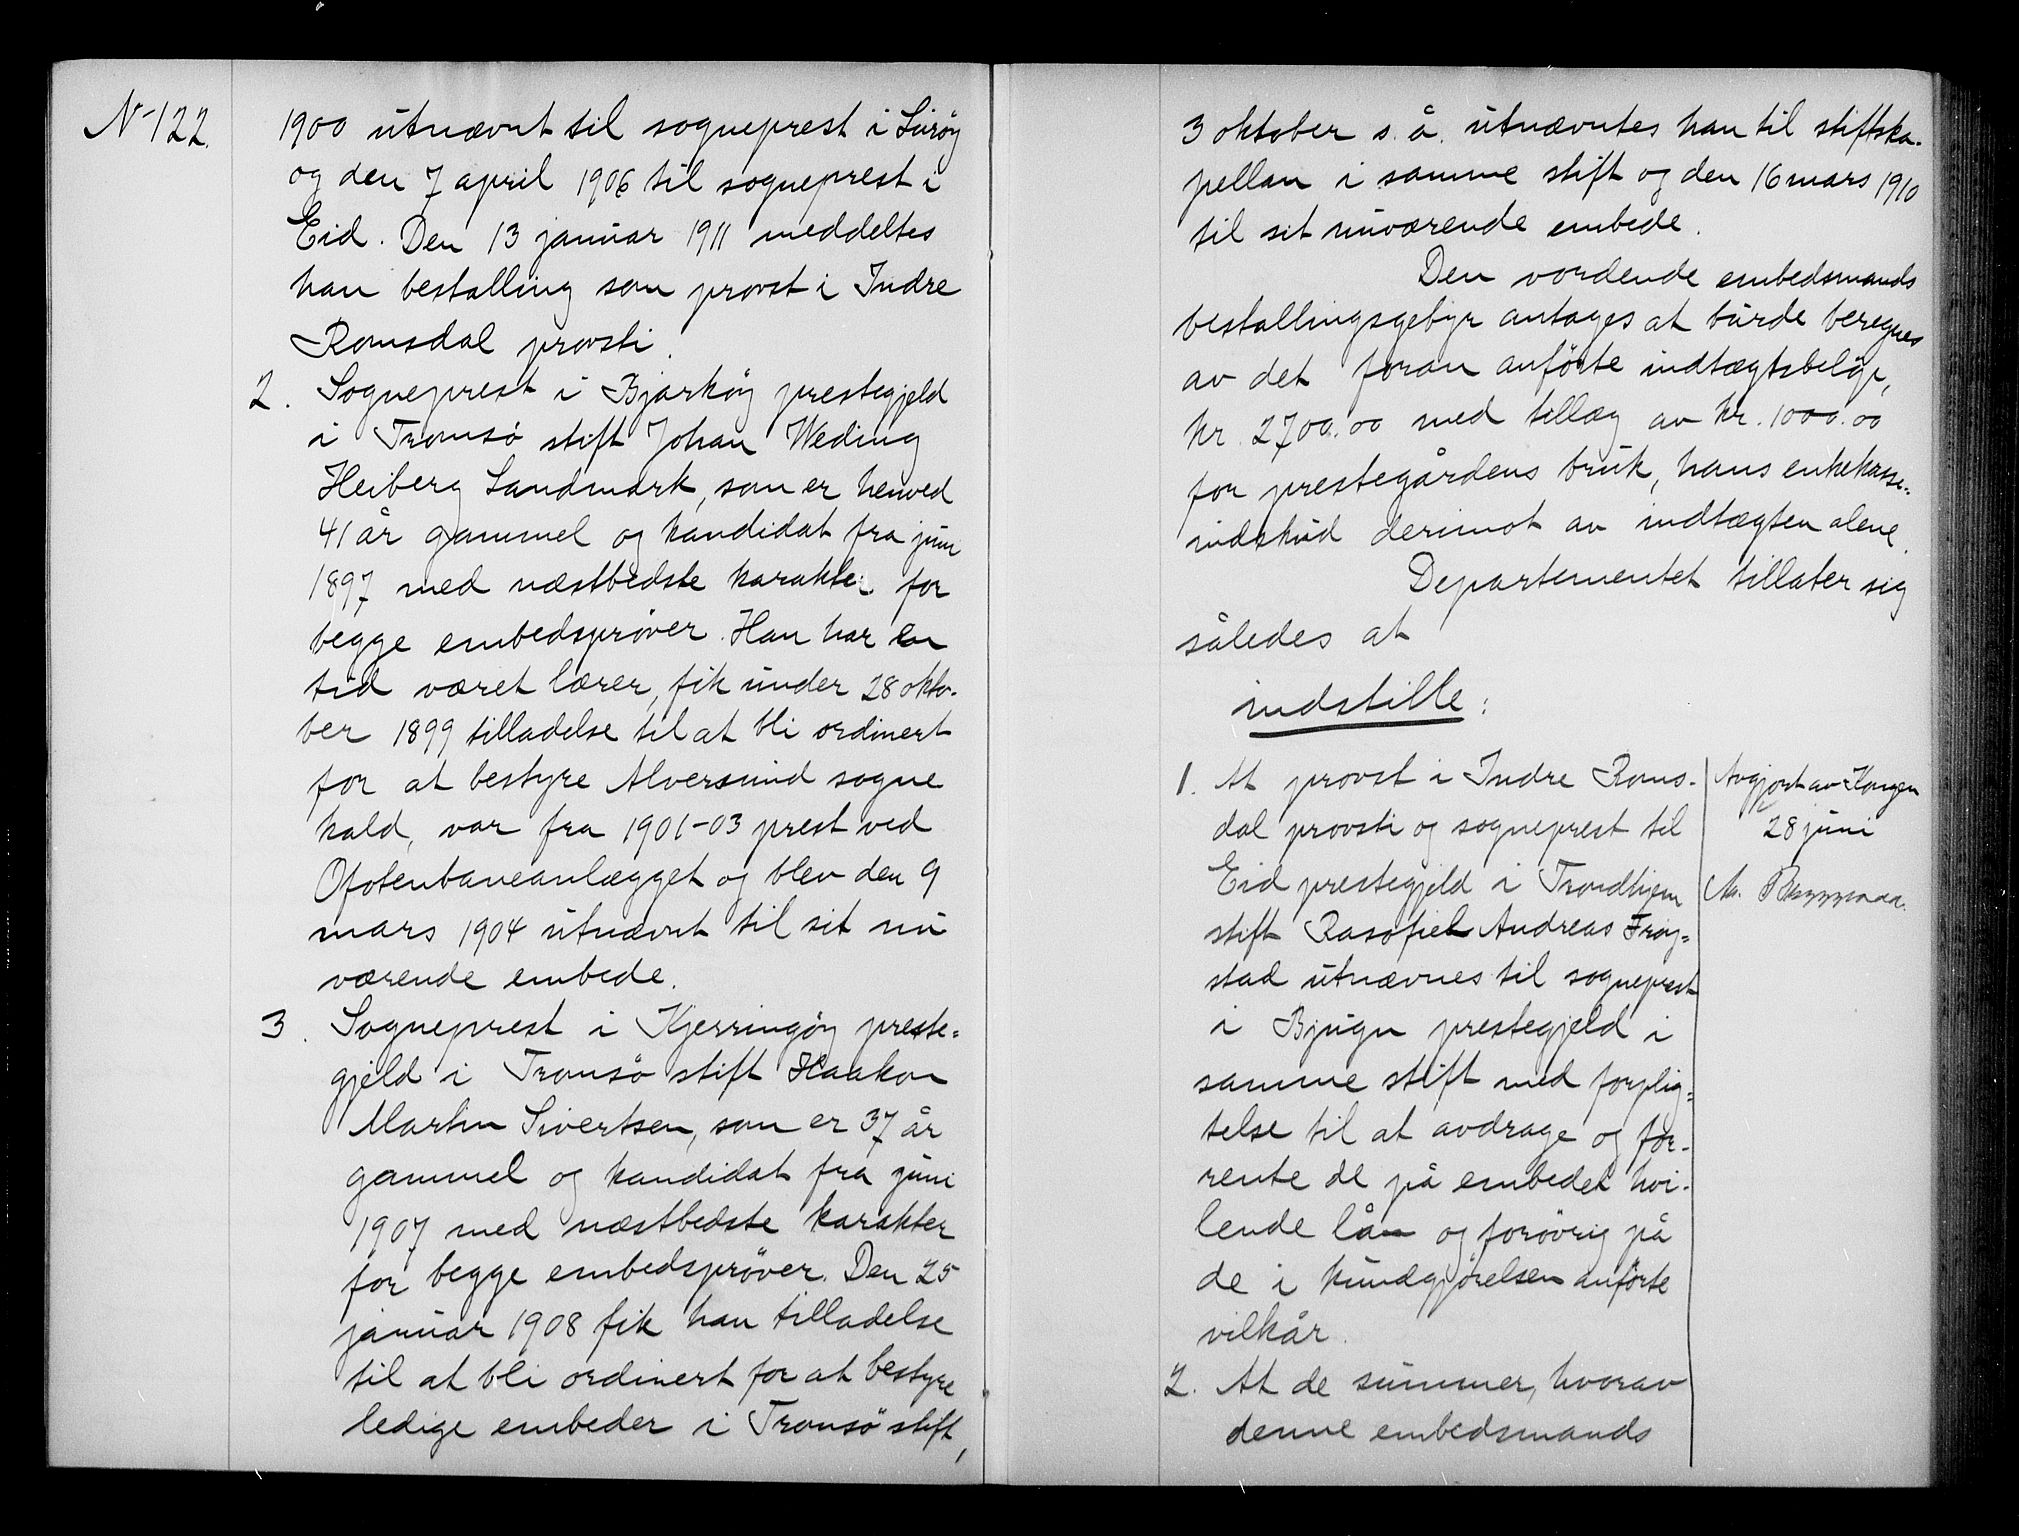 N 122.
1900 utnævnt til sogneprest i Lurøy
og den 7 april 1906 til sogneprest i
Eid. Den 13 januar 1911 meddeltes
han bestalling som provst i Indre
Romsdal provsti.
2. Sogneprest i Bjarkøy prestegjeld
i Tromsø stift Johan Weding
Heiberg Landmark, som er henved
41 år gammel og kandidat fra juni
1897 med næstbedste karakter for
begge embedsprøver. Han har en
tid været lærer, fik under 28 okto-
ber 1899 tilladelse til at bli ordinert
for at bestyre Alversund sogne
kald, var fra 1901-03 prest ved
Ofotenbaneanlægget og blev den 9
mars 1904 utnævnt til sit nu
værende embede.
3. Sogneprest i Kjerringøy preste=
gjeld i Tromsø stift Haakon
Martin Sivertsen, som er 37 år
gammel og kandidat fra juni
1907 med næstbedste karakter
for begge embedsprøver. Den 25
januar 1908 fik han tilladelse
til at bli ordinert for at bestyre
ledige embeder i Tromsø stift,
3 oktober s. å. utnævntes han til stiftska-
pellan i samme stift og den 16 mars 1910
til sit nuværende embede.
Den vordende embedsmands
bestallingsgebyr antages at burde beregnes
av det foran anførte indtægtsbeløp,
kr. 2700.00 med tillæg av kr. 1000.00
for prestegårdens bruk, hans enkekasse-
indskud derimot av indtægten alene.
Departementet tillater sig
således at
indstille:
1. At provst i Indre Roms-
dal provsti og sogneprest til
Eid prestegjeld i Trondhjem
stift Rasofiel Andreas Frøy=
stad utnævnes til sogneprest
i Bjugn prestegjeld i
samme stift med forplig=
telse til at avdrage og for-
rente de på embedet hvi-
lende lån og forøvrig på
de i kundgjørelsen anførte
vilkår.
2. At de summer, hvorav
denne embedsmands
Avgjort av Kongen
28 juni